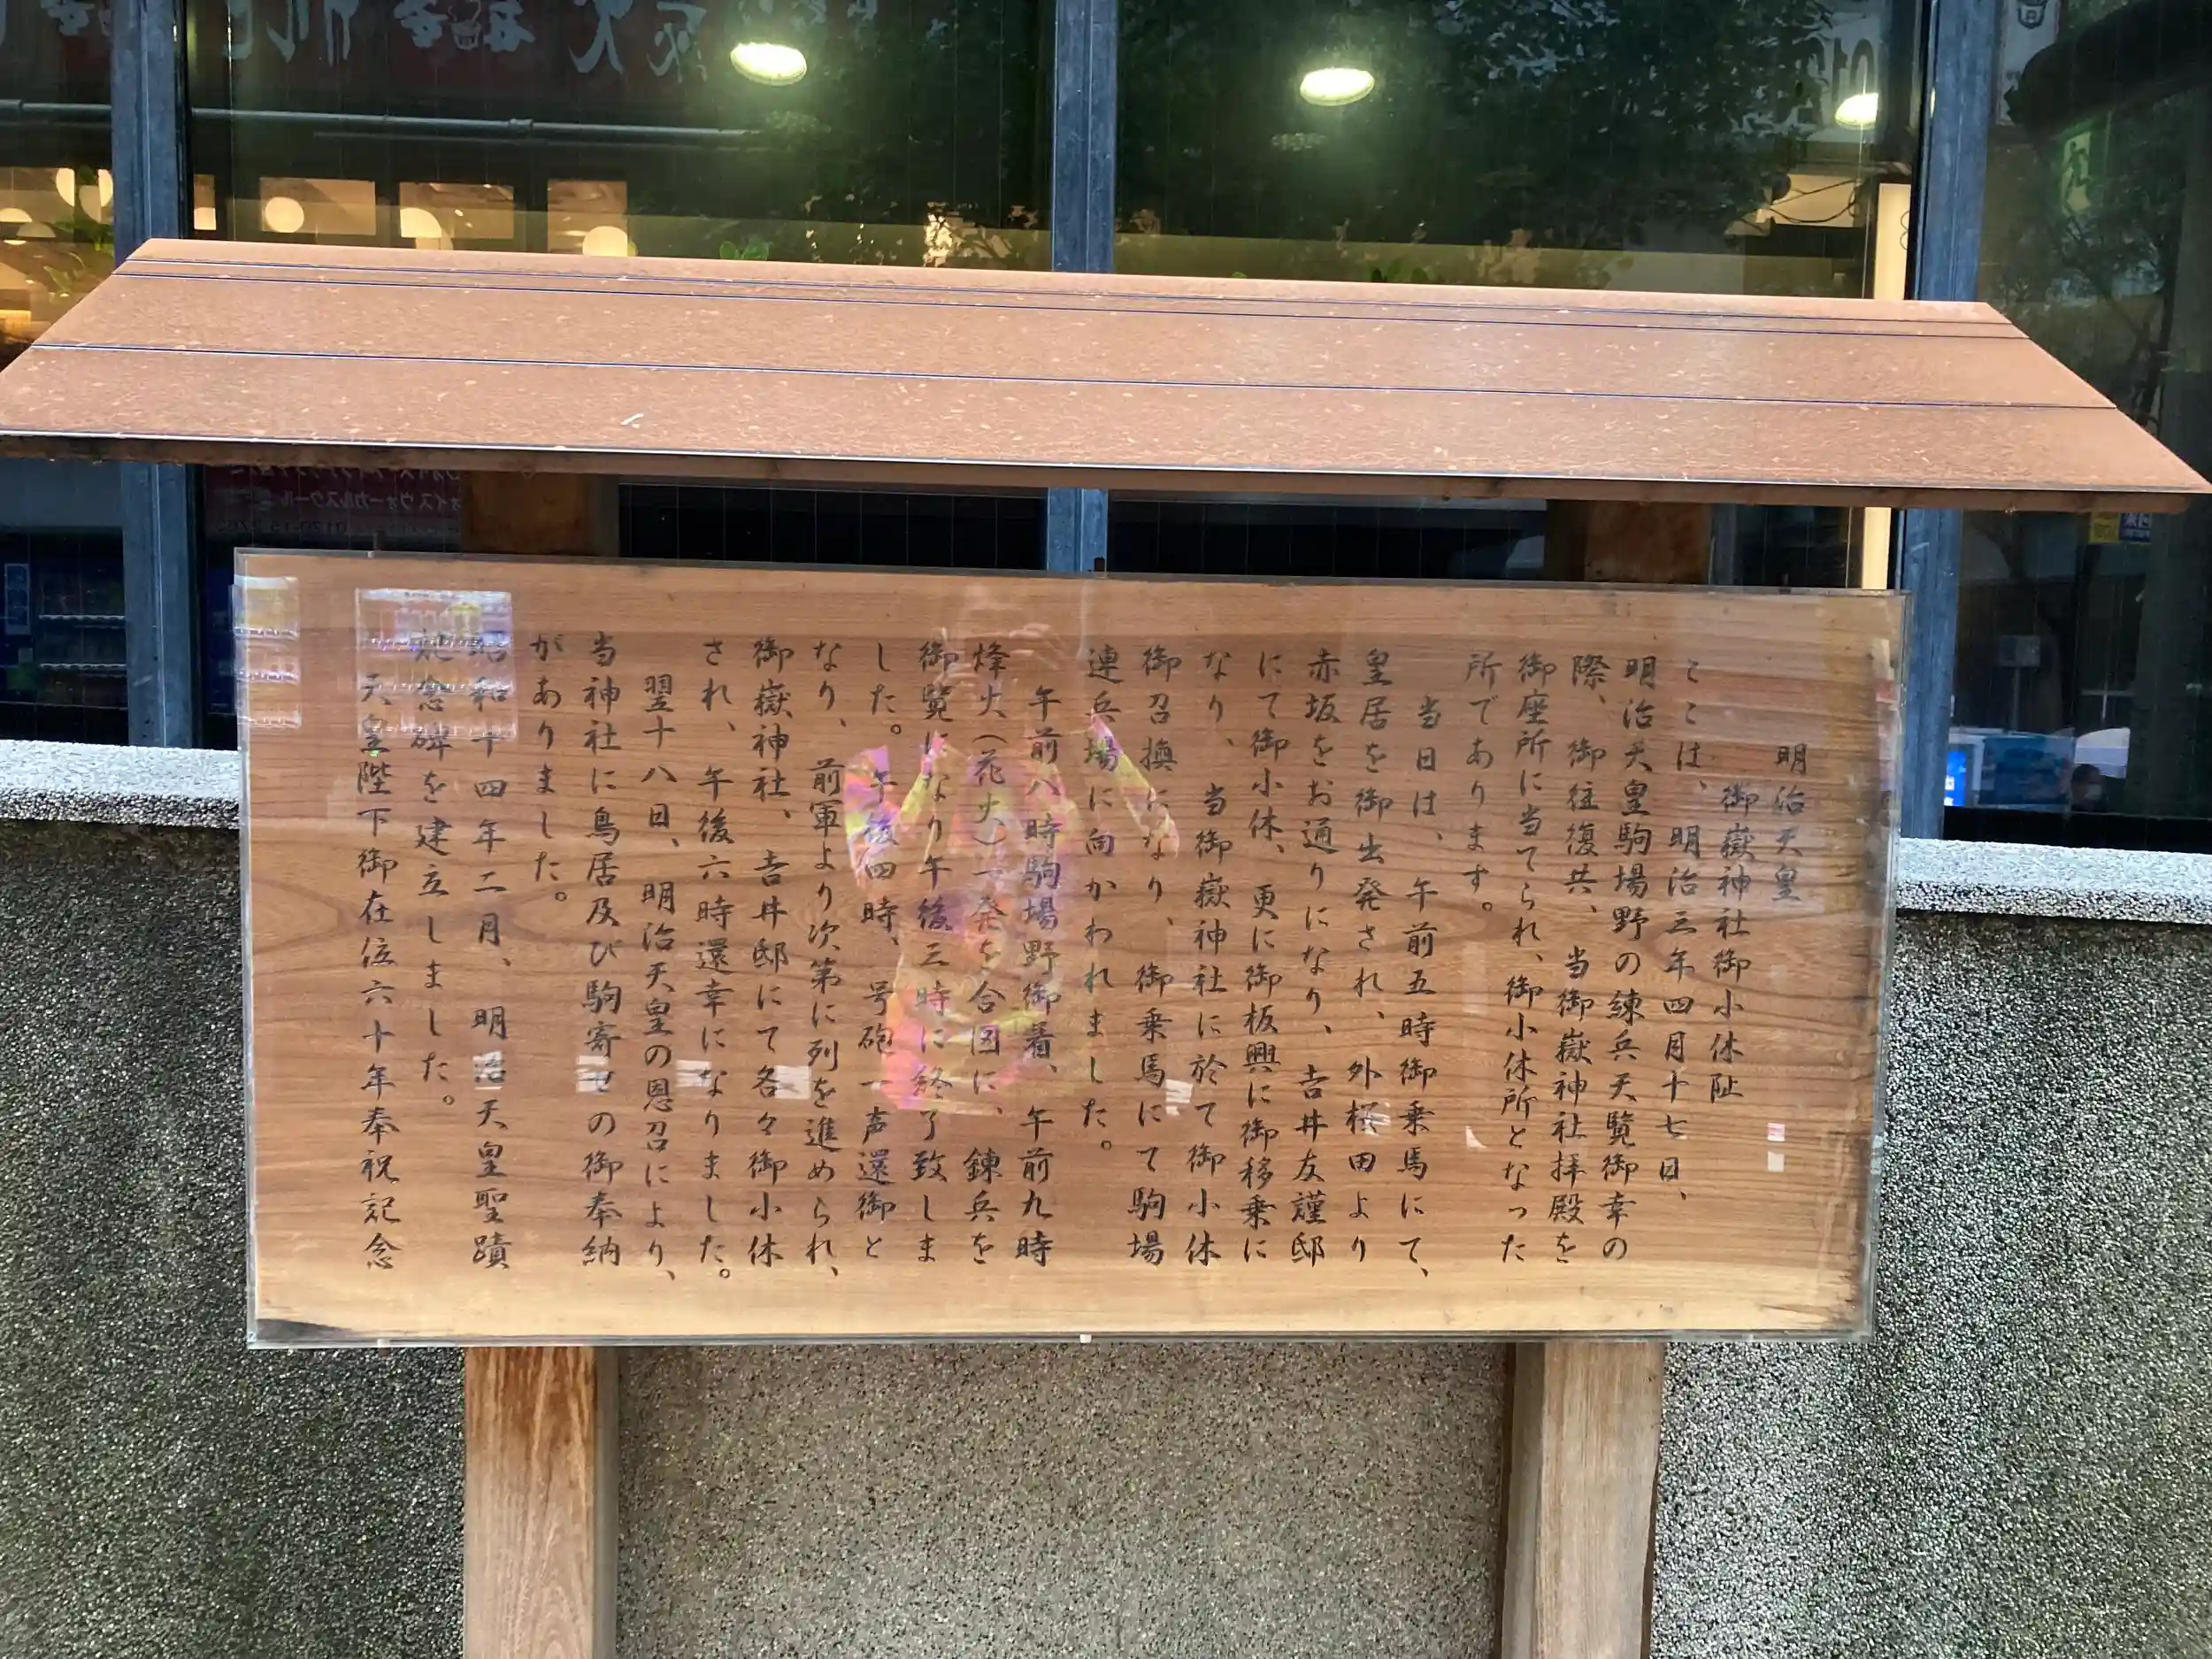 明治天皇
御嶽神社御小休阯
ここは、明治三年四月十七日、
明治天皇駒場野の練兵天覧御幸の
際、御往復共、当御嶽神社拝殿を
御座所に当てられ、御小休所となった
所であります。
当日は、午前五時御乗馬にて、
皇居を御出発され、外桜田より
赤坂をお通りになり、吉井友謹邸
にて御小休、更に御板輿に御移乗に
なり、当御嶽神社に於て御小休
御召換になり、御乗馬にて駒場
連兵場に向かわれました。
午前八時駒場野御着、午前九時
烽火(花火)一発を合図に、錬兵を
御覧になり午後三時に終了致しま
した。午後四時、号砲一声還御と
なり、前軍より次第に列を進められ、
御嶽神社、吉井邸にて各々御小休
され、午後六時還幸になりました。
翌十八日、明治天皇の恩召により、
当神社に鳥居及び駒寄せの御奉納
がありました。
昭和十四年二月、明治天皇聖蹟
紀念碑を建立しました。
天皇陛下御在位六十年奉祝記念
ォイス ヴォーカルスクール